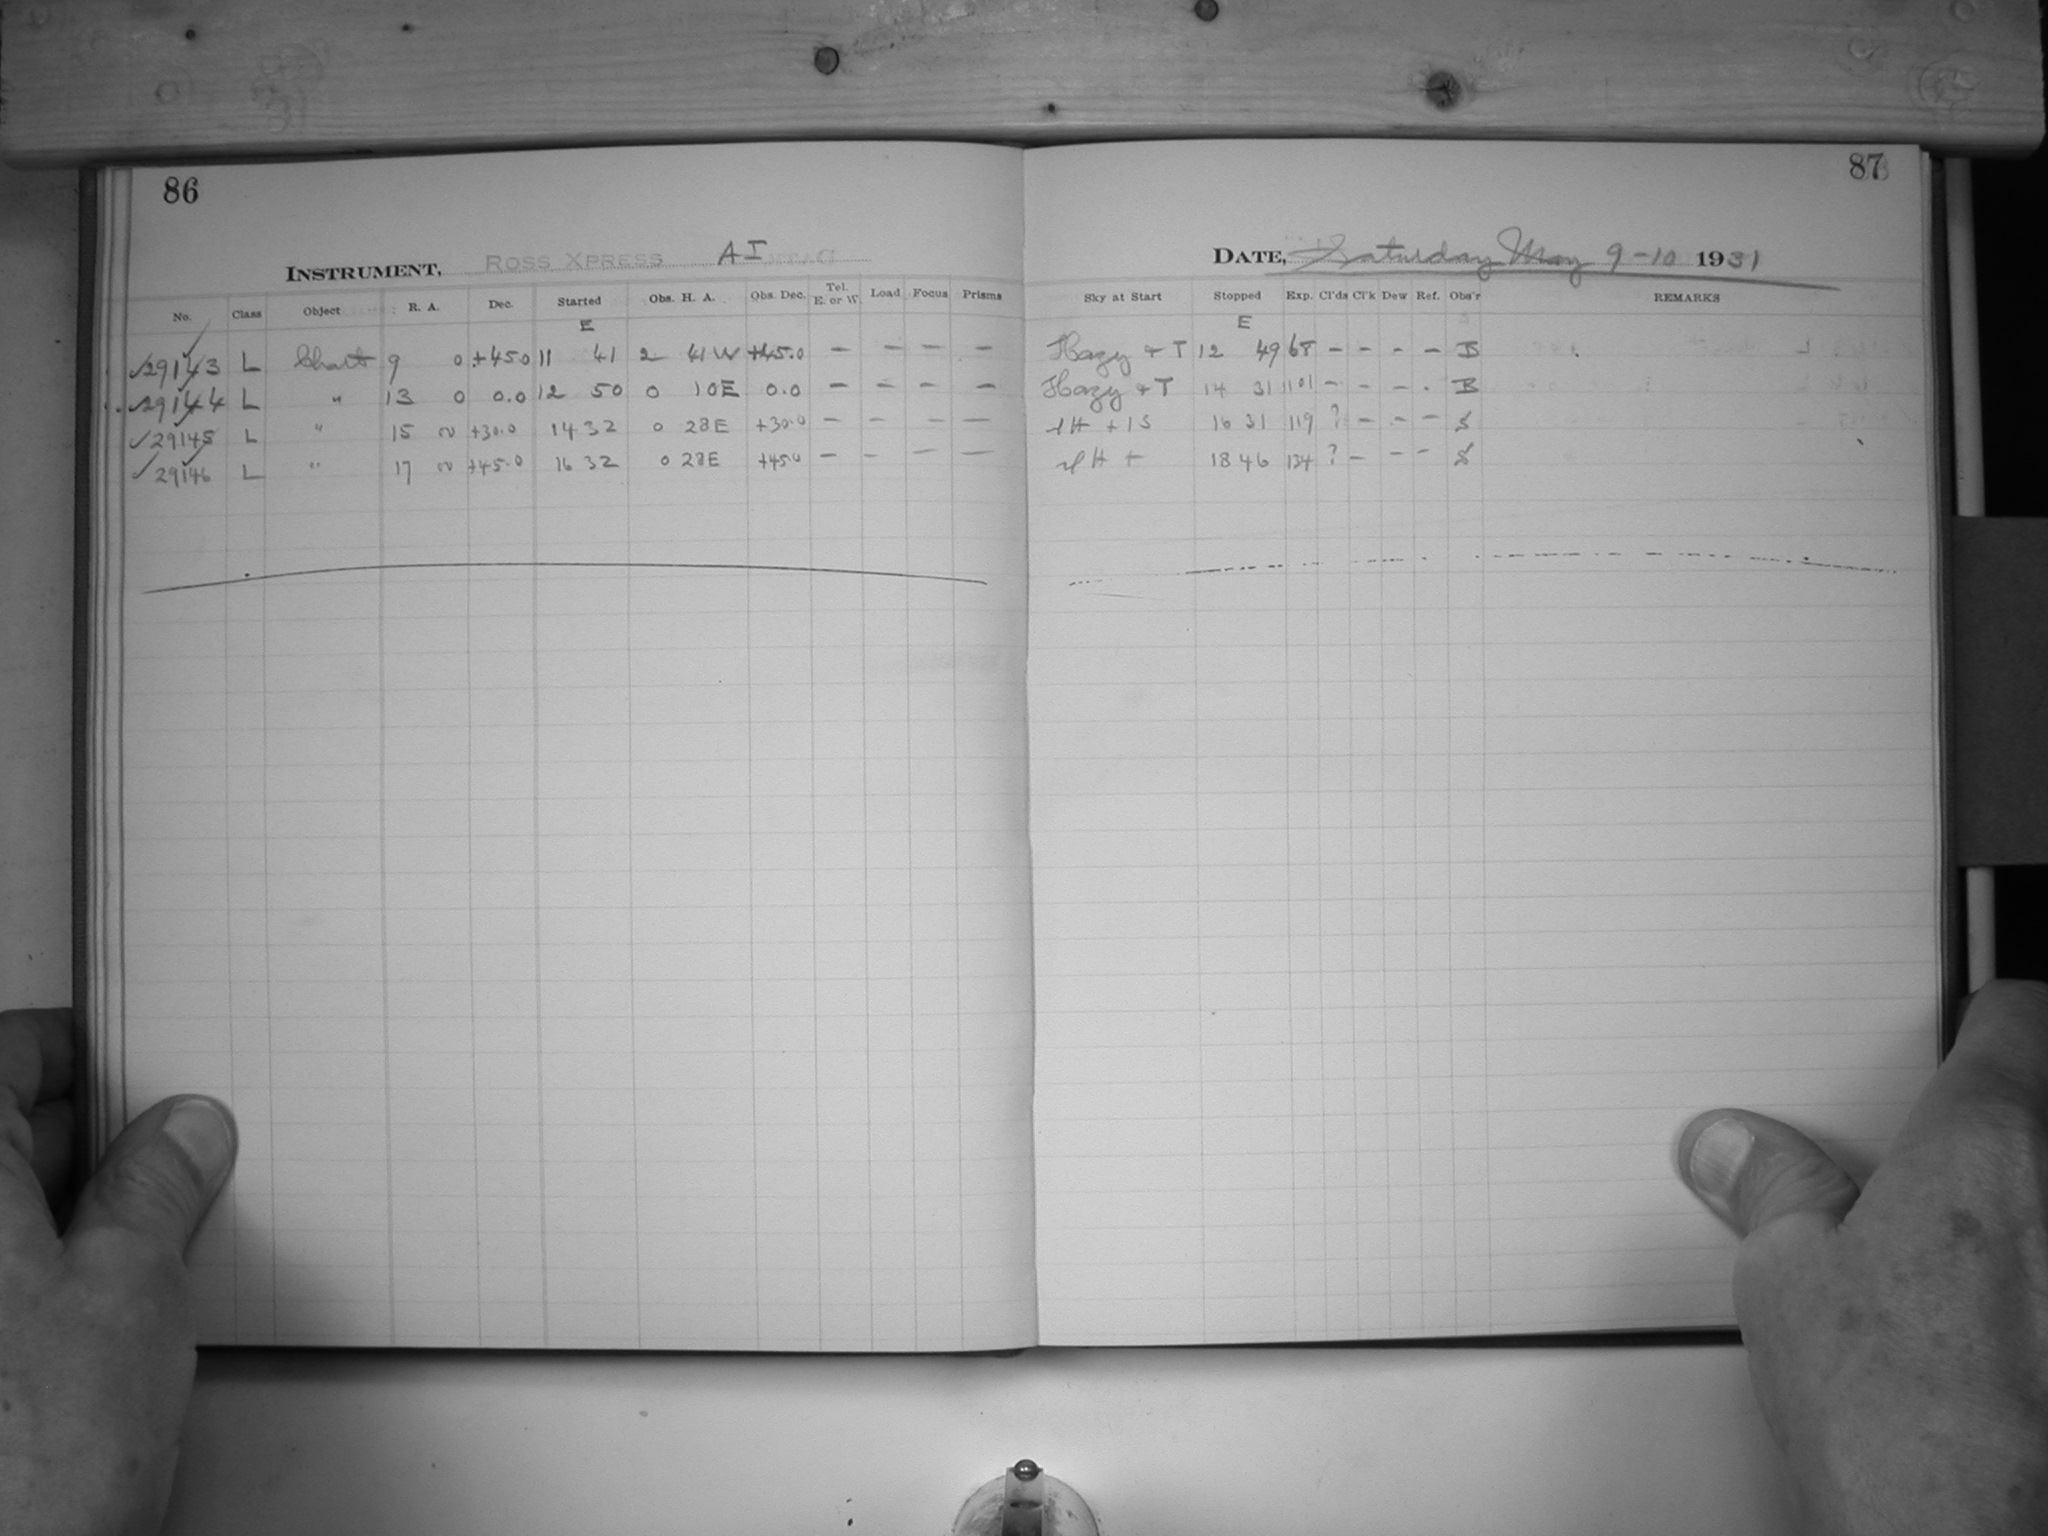 86
INSTRUMENT, ROSS XPRESS AI
No. Class Object R. A. Dec. Started Obs. H. A. Obs. Dec. Tel. E. or W. Load Focus Prisms
E
29143 L Chart 9 0 +45.0 11 41 2 41 W +45.0 - - - -
29144 L " 13 0 0.0 12 50 0 10E 0.0 - - - -
29145 L " 15 0 +30.0 14 32 0 28E +30.0 - - - -
29146 L " 17 0 +45.0 16 32 0 28E +45.0 - - - -
87
DATE, Saturday May 9-10 1931
Sky at Start Stopped Exp. Cl'ds Cl'k Dew Ref. Obs'r REMARKS
E
Hazy + T 12 49 68 - - - - B
Hazy + T 14 31 101 - - - . B
H + 1S 16 31 119 ? - - - S
H + 18 46 134 ? - - - S